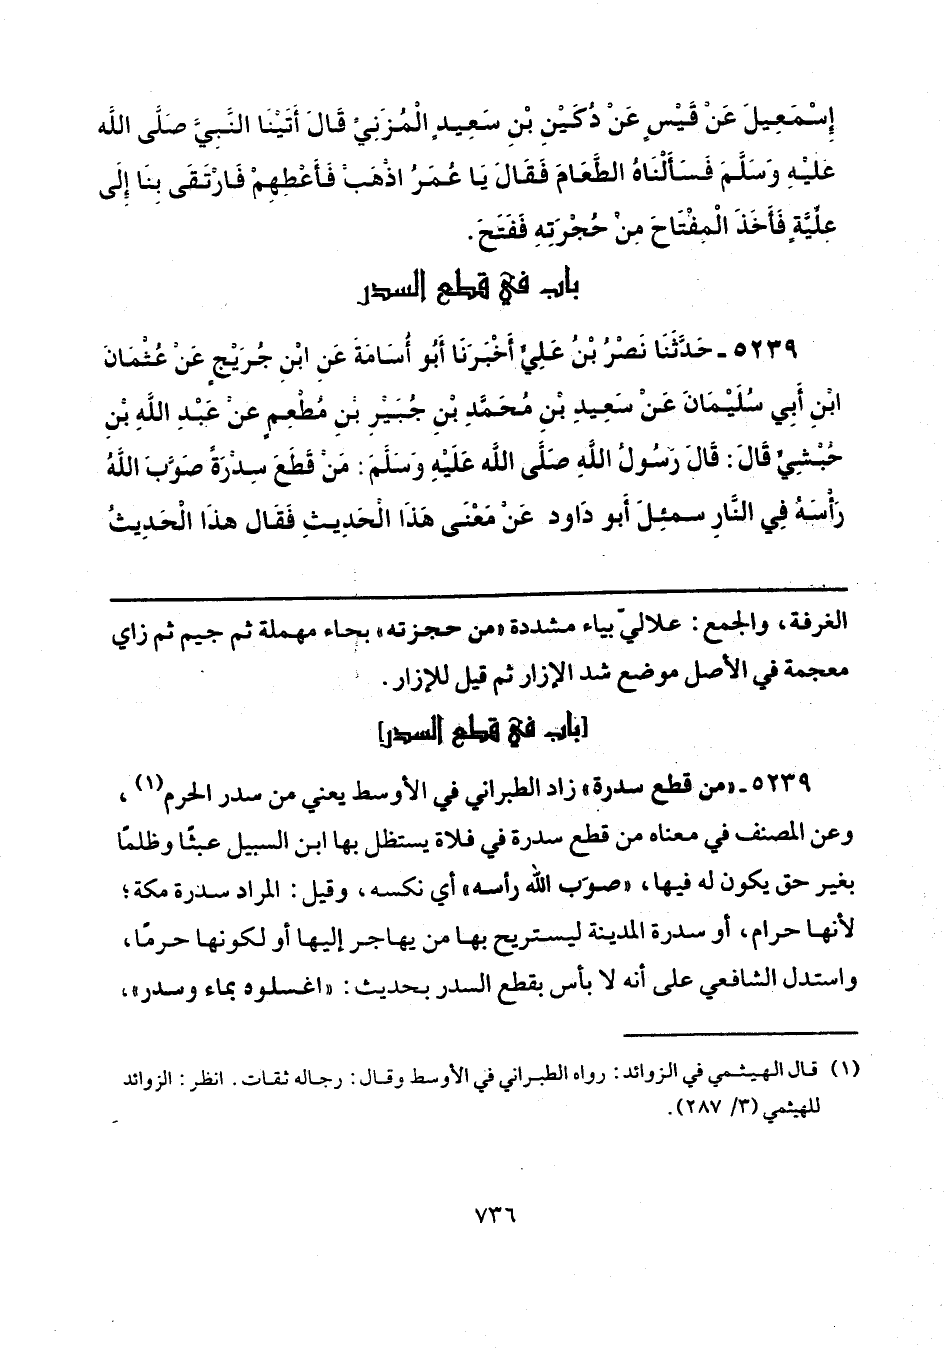 إِسْمَعِيلَ عَنْ قَيْسٍ عَنْ دُكَيْنِ بْنِ سَعِيدٍ الْمُزَنِيِّ قَالَ أَتَيْنَا النَّبِيَّ صَلَّى اللَّه
عَلَيْهِ وَسَلَّمَ فَسَأَلْنَاهُ الطَّعَامَ فَقَالَ يَا عُمَرُ اذْهَبْ فَأَعْطِهِمْ فَارْتَقَى بِنَا إِلَى
عِلِّيَّةٍ فَأَخَذَ الْمِفْتَاحَ مِنْ حُجْرَتِهِ فَفَتَحَ.
باب في قطع السدر
٥٢٣٩ - حَدَّثَنَا نَصْرُ بْنُ عَلِيٍّ أَخْبَرَنَا أَبُو أُسَامَةَ عَنِ ابْنِ جُرَيْجٍ عَنْ عُثْمَانَ
ابْنِ أَبِي سُلَيْمَانَ عَنْ سَعِيدِ بْنِ مُحَمَّدِ بْنِ جُبَيْرِ بْنِ مُطْعِمٍ عَنْ عَبْدِ اللَّهِ بْنِ
حُبْشِيٍّ قَالَ: قَالَ رَسُولُ اللَّهِ صَلَّى اللَّه عَلَيْهِ وَسَلَّمَ: مَنْ قَطَعَ سِدْرَةً صَوَّبَ اللَّهُ
رَأْسَهُ فِي النَّارِ سمئِلَ أبو دَاود عَنْ مَعْنَى هَذَا الْحَدِيثِ فَقَال هذَا الْحَدِيثُ
الغرفة، والجمع: علاليّ بياء مشددة «من حجزته» بحاء مهملة ثم جيم ثم زاي
معجمة في الأصل موضع شد الإزار ثم قيل للإزار.
[باب في قطع السدر]
٥٢٣٩ - «من قطع سدرة» زاد الطبراني في الأوسط يعني من سدر الحرم(١)،
وعن المصنف في معناه من قطع سدرة في فلاة يستظل بها ابن السبيل عبثًا وظلمًا
بغير حق يكون له فيها، «صوّب الله رأسه» أي نكسه، وقيل: المراد سدرة مكة؛
لأنها حرام، أو سدرة المدينة ليستريح بها من يهاجر إليها أو لكونها حرمًا،
واستدل الشافعي على أنه لا بأس بقطع السدر بحديث: «اغسلوه بماء وسدر»،
(١) قال الهيثمي في الزوائد: رواه الطبراني في الأوسط وقال: رجاله ثقات. انظر: الزوائد
للهيثمي (٣/ ٢٨٧).
٧٣٦